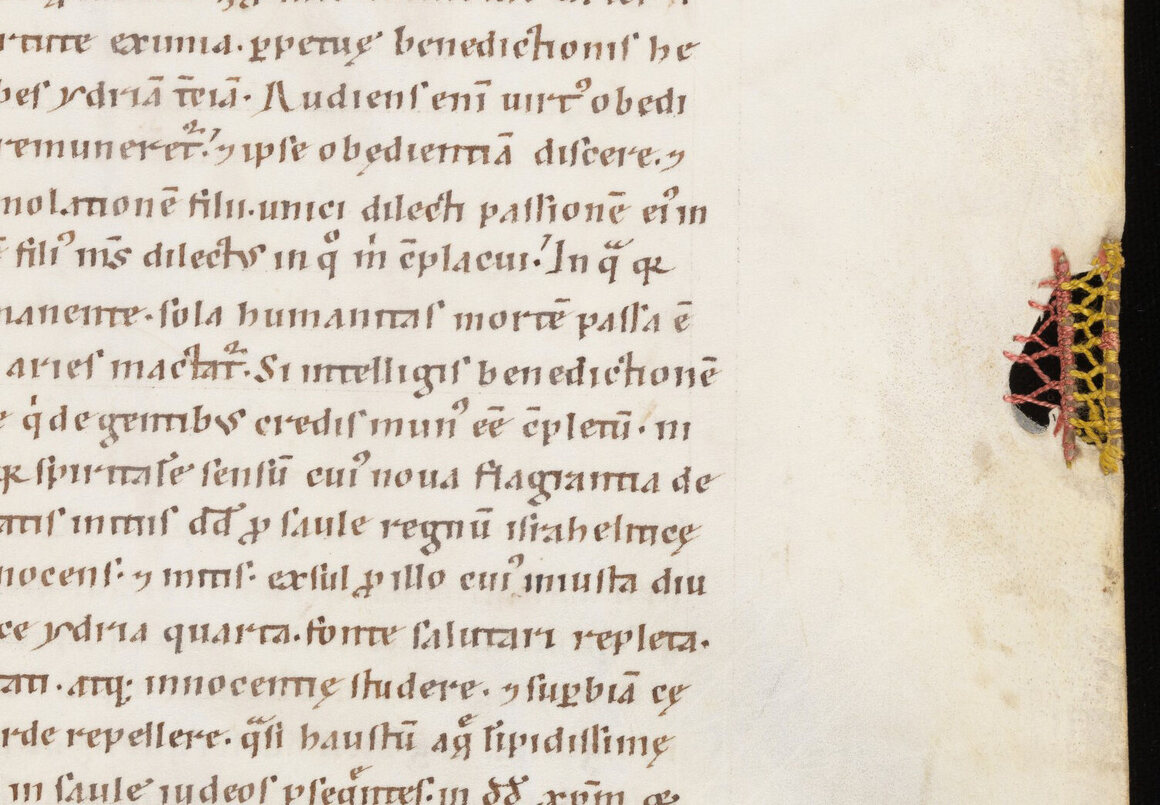 exımıa. ꝑpetuę benedictionıſ he
beſ ydriā t̄ciā. Audienſ enī uirtꝰ obedi
remuneret᷑. ⁊ ipſe obędientiā diſcere. ⁊
molationē filii. unici dilecti paſſionē eiꝰ in
filiꝰ m̄s dilectuſ in qͦ m̍ c̄placui. In qᷓ qꝛ
manente. ſola humanitaſ mortē paſſa ē
arieſ mactat᷑. Si intelligiſ benedictionē
q̍ de gentibuſ crediſ munꝰ eē c̄pletū. ni
qꝛ ſpiritalē ſenſū cuiꝰ noua flagrantia de
atiſ initiiſ dd̄ ꝓ ſaule regnū iſrahelitıcę
nocenſ. ⁊ mitiſ. exſul ꝓ illo cuiꝰ iniuſta diu
ce ydria quarta. fonte ſalutari repleta.
tati. atq; innocentię ſtudere. ⁊ ſuꝑbiā cę
rde repellere. qᷓſi hauſtū aq̨ͤ līpidiſſimę
in ſaule iudeoſ ꝑſeqͤnteſ. in dd̄ xp̄m